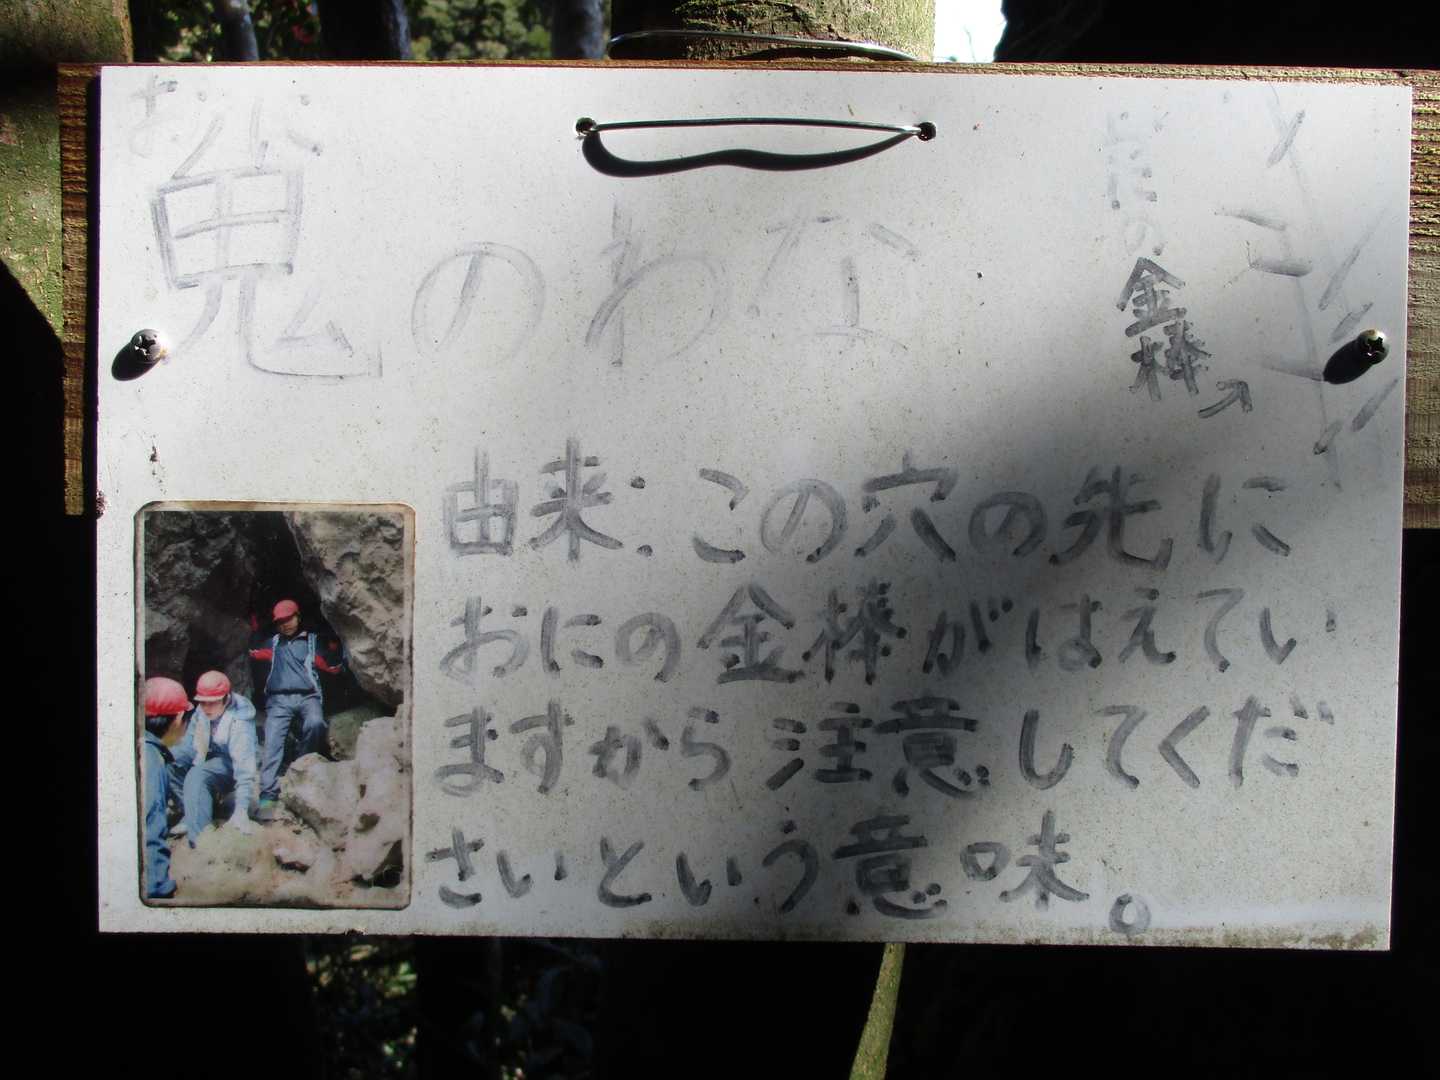 おに
鬼のわな
おにの金棒
由来:この穴の先に
おにの金棒がはえてい
ますから注意してくだ
さいという意味。